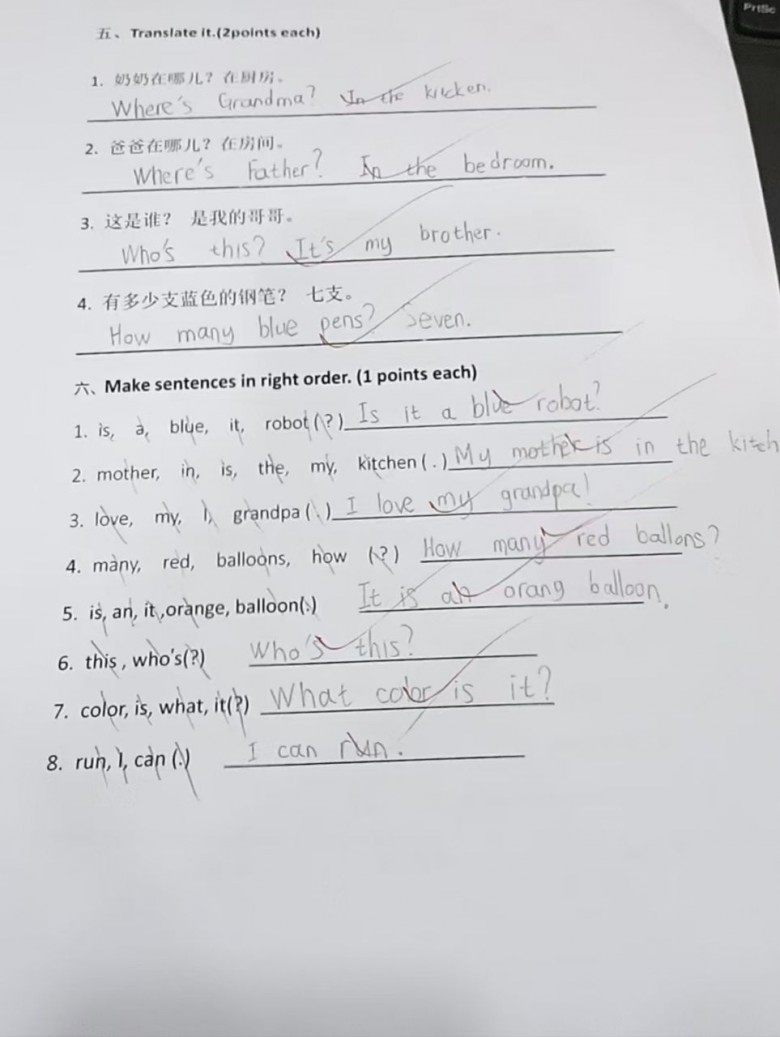 PrtSc
五、Translate it.(2points each)
1. 奶奶在哪儿？在厨房。
Where's Grandma? In the kicken.
2. 爸爸在哪儿？在房间。
Where's Father? In the bedroom.
3. 这是谁？ 是我的哥哥。
Who's this? It's my brother.
4. 有多少支蓝色的钢笔？ 七支。
How many blue pens? Seven.
六、Make sentences in right order. (1 points each)
1. is, a, blue, it, robot (?) Is it a blue robot?
2. mother, in, is, the, my, kitchen ( . ) My mother is in the kitch
3. love, my, I, grandpa ( . ) I love my grandpa!
4. many, red, balloons, how (?) How many red ballons?
5. is, an, it ,orange, balloon(.) It is an orang balloon.
6. this , who's(?) Who's this?
7. color, is, what, it(?) What color is it?
8. run, I, can (.) I can run.